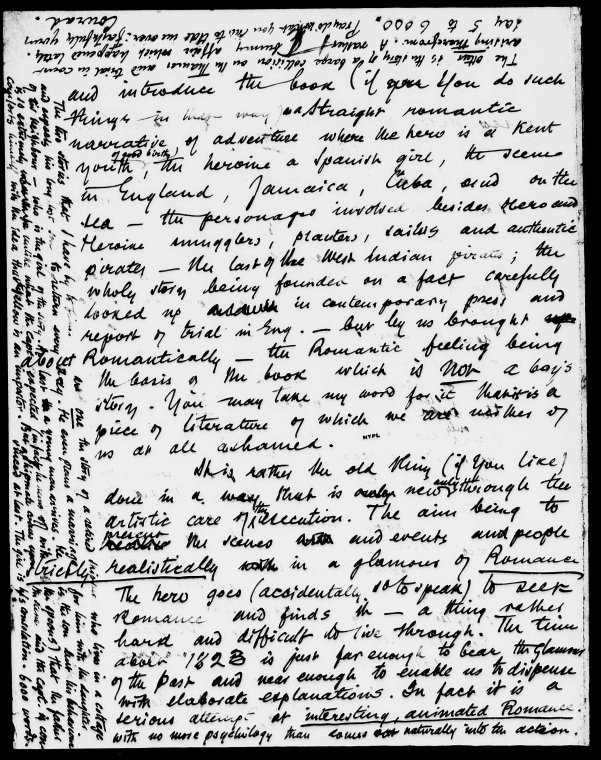 and introduce the book (if you do such
things in that way) a straight romantic
narrative of adventure where the hero is a Kent
youth (of good birth), the heroine a Spanish girl, the scene
in England, Jamaica, Cuba, and on the
sea — the personages involved besides Hero and
Heroine smugglers, planters, sailors and authentic
pirates — the last of the West Indian pirates; the
whole story being founded on a fact carefully
looked up in contemporary press and
report of trial in Eng. — but by us brought
Romantically — the Romantic feeling being
the basis of the book which is not a boy's
story. You may take my word for it that it is a
piece of literature of which we are neither of
us at all ashamed.
NYPL
It is rather the old thing (if you like)
done in a way that is new only through the
artistic care of the execution. The aim being to
present the scenes and events and people
strictly realistically in a glamour of Romance
The hero goes (accidentally, so to speak) to seek
Romance and finds it — a thing rather
hard and difficult to live through. The time
about 1823 is just far enough to bear the glamour
of the Past and near enough to enable us to dispense
with elaborate explanations. In fact it is a
serious attempt at interesting, animated Romance
with no more psychology than comes naturally into the action.
The two stories that I have by
one the story of a retired
who lives in a cottage
and expects his boy to return every day. He even plans a marriage for him with the daughter
of his neighbour — who is the girl of the story. At last a young man arrives. He is the son but his behaviour
is so extremely unlike what the Capt. expected
that the father
comforts himself with the idea this fellow is an impostor.
the girl is his consolation. 6000 words
The other is the story of a barge collision on the Thames and trial in court
arising therefrom. A rather funny affair which happened lately.
say 5 to 6000. Pray do what you like to
faithfully yours
Conrad.